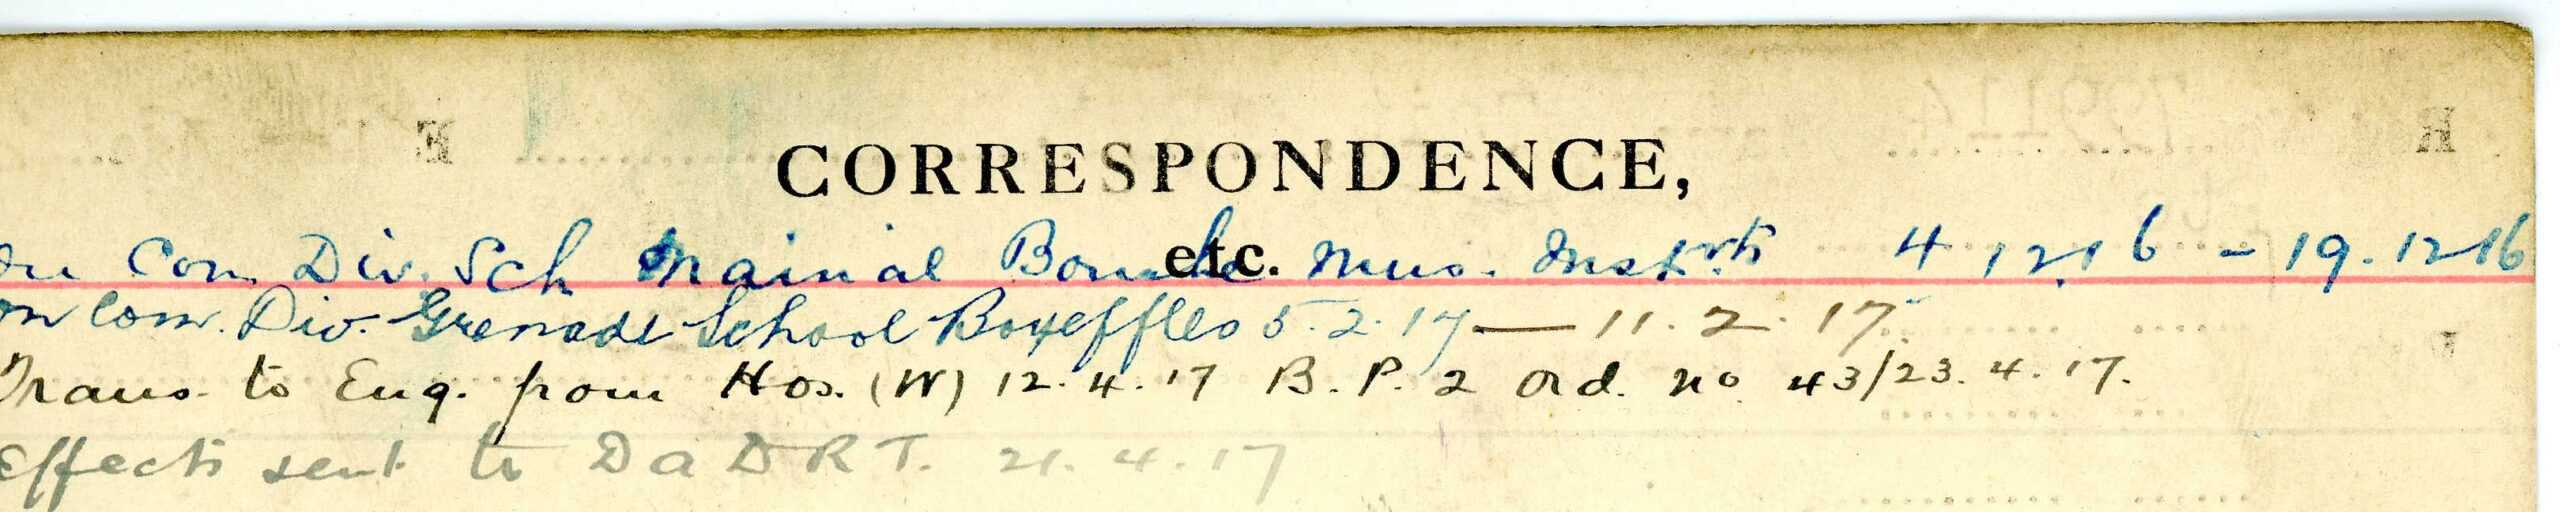 CORRESPONDENCE,
etc.
on Com Div. Sch Mainial Bouche Mus. Instrts 4 12.16 - 19.12.16
on Com. Div. Grenade School Boyeffles 5.2.17 — 11.2.17
Trans. to Eng. from Hos. (W) 12.4.17 B.P. 2 Ord. No. 43/23.4.17.
Effects sent to DaDRT. 21.4.17